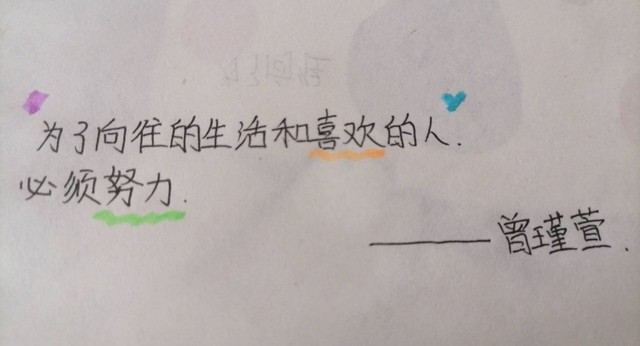 为了向往的生活和喜欢的人.
必须努力.
——曾瑾萱.